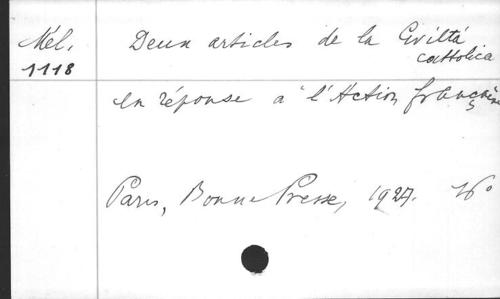 Mél.
1118
Deux articles de la Civiltá
cattolica
en réponse a l'Action française
Paris, Bonne Presse, 1927. 16°